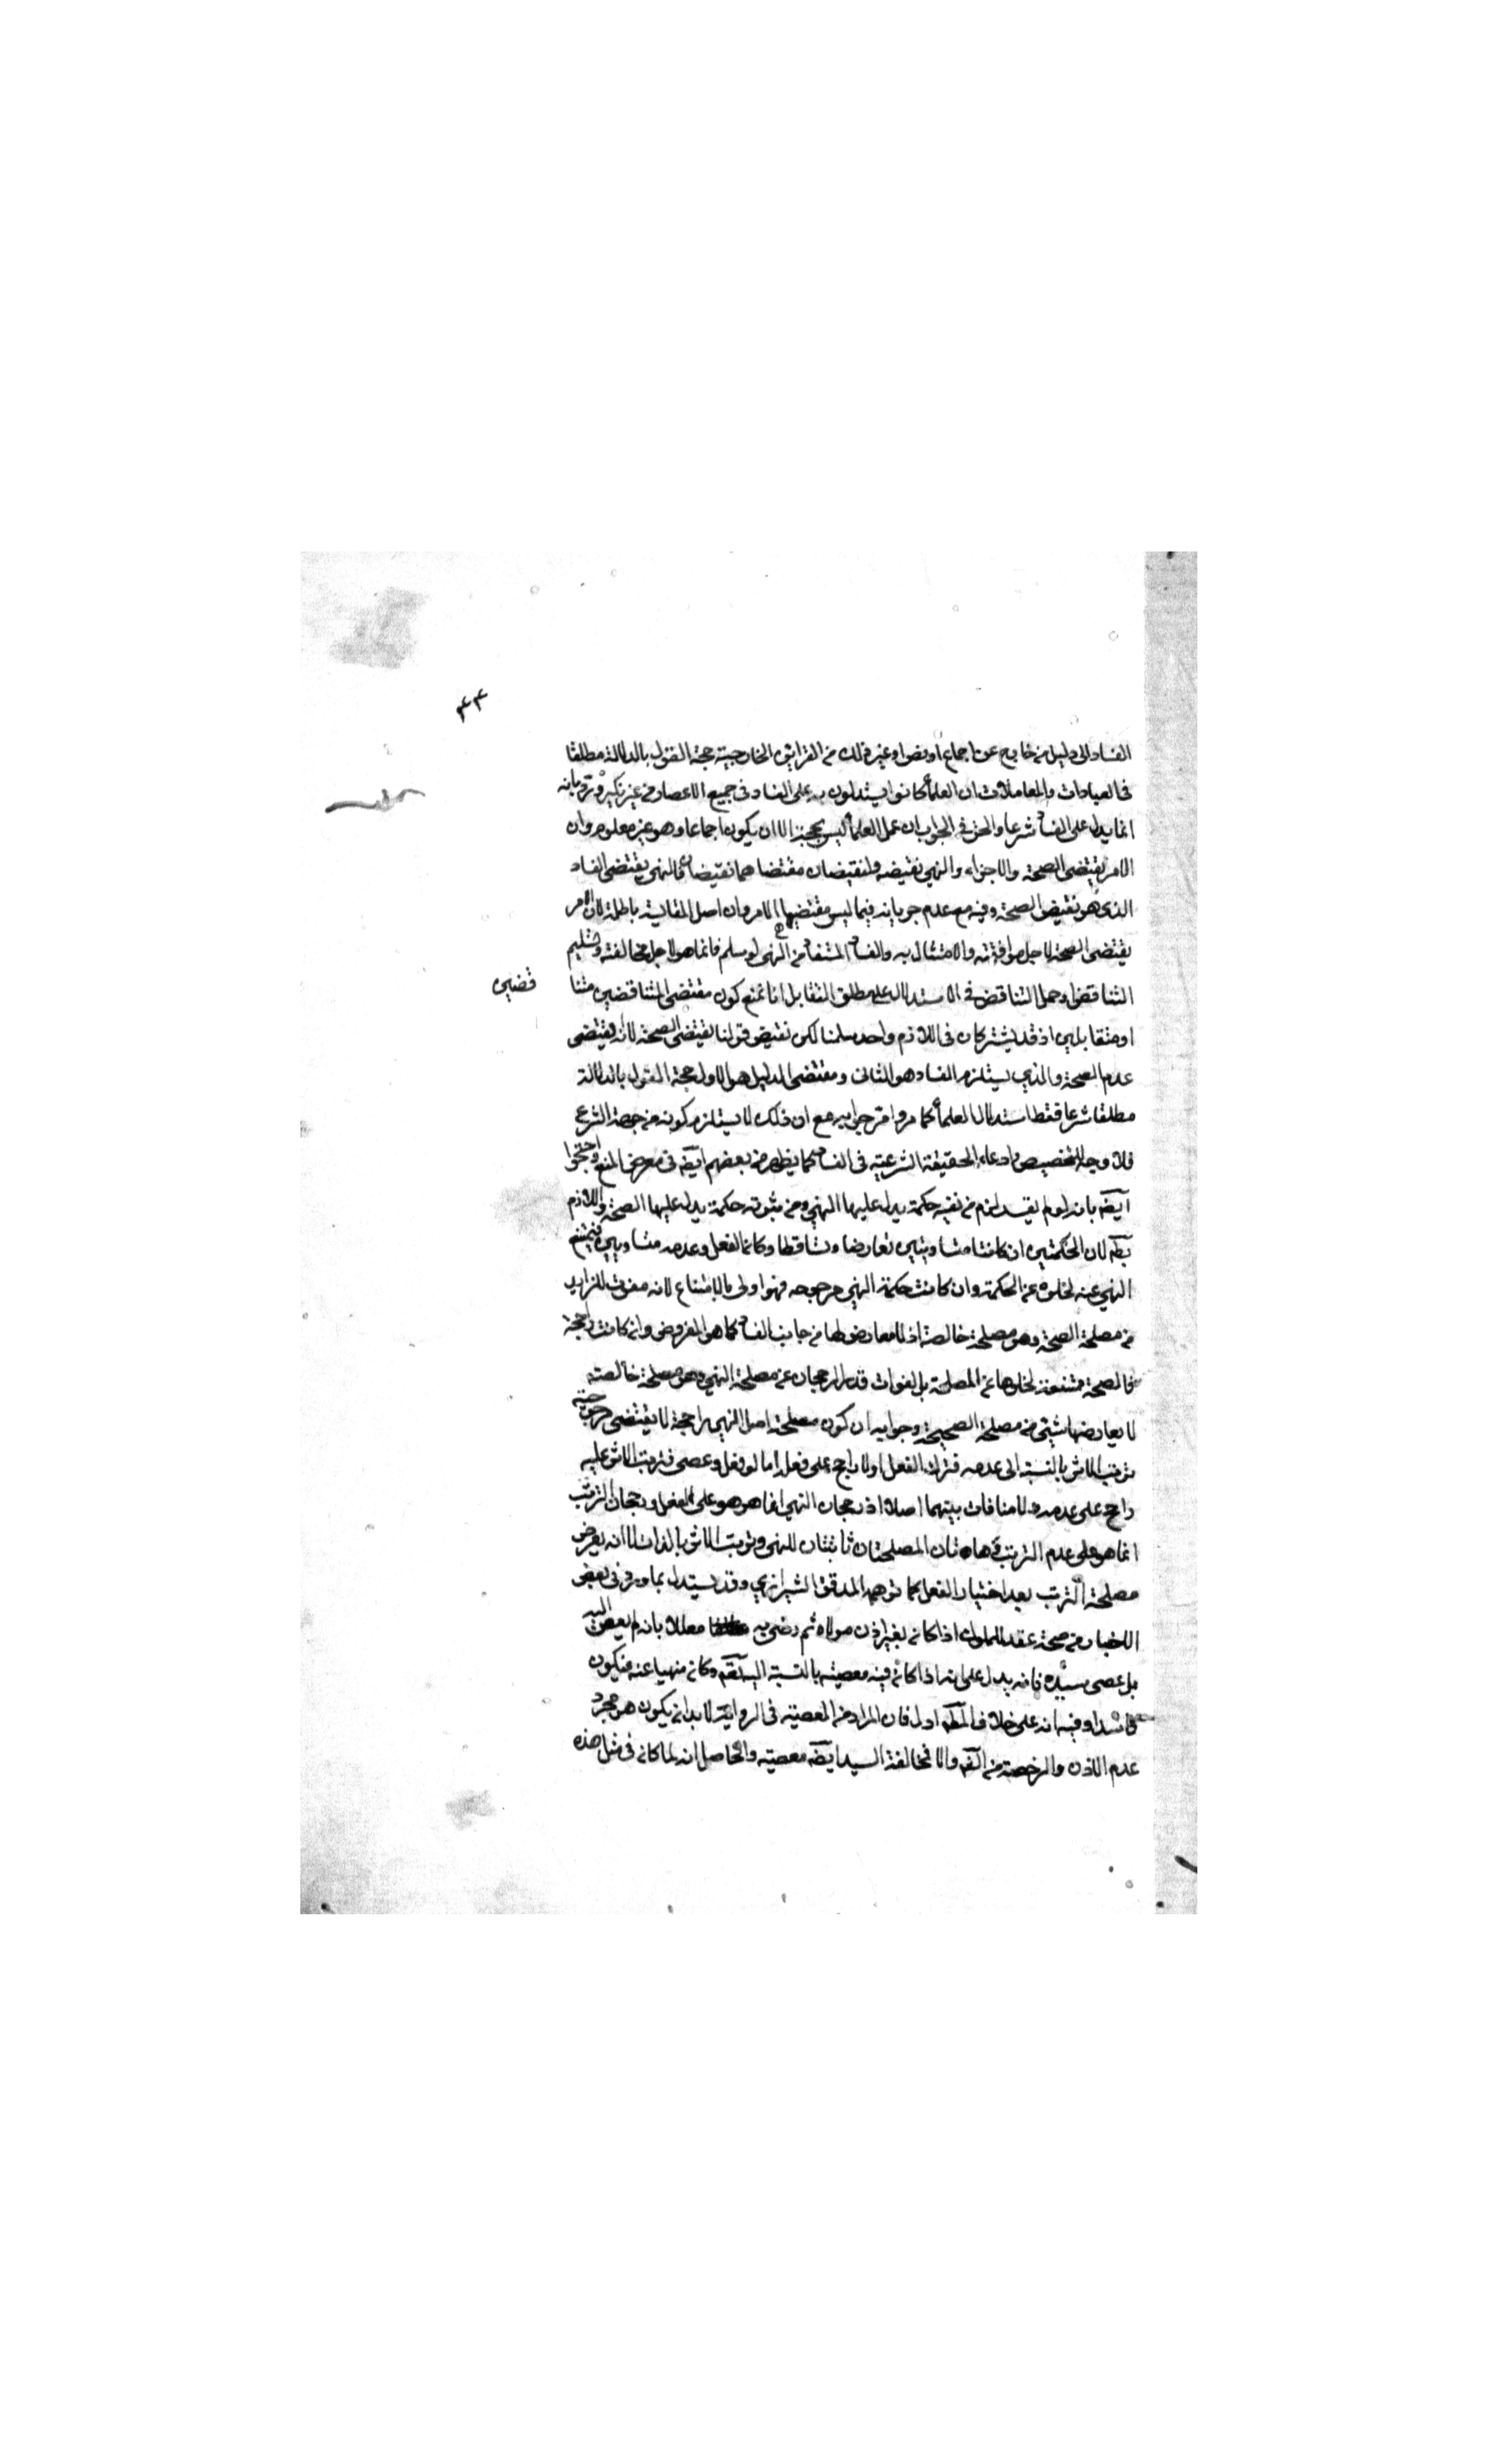 ۴۳
الفساد الى دليل من خارج عن اجماع او نص او غير ذلك من القرائن الخارجية حجة القول بالدلالة مطلقا
فى العبادات والمعاملات ان العلمأ كانوا يستدلون به على الفساد فى جميع الاعصار من غير نكير وترد بانه
انما يدل على الفسا شرعا والحق فى الجواب ان عمل العلمأ ليس بحجة الا ان يكون اجماعا وهو غير معلوم وان
الامر يقتضى الصحة والاجزاء والنهى نقيضه والنقيضان مقتضاهما نقيضان فالنهى يقتضى الفساد
الذى هو نقيض الصحة وفيه مع عدم جريانه فيما ليس مقتضيها الامر وان اصل المقايسة باطلة لان الامر
يقتضى الصحة لاجل موافقته والامتثال به والفسا المستفا من النهى لو سلم فانما هو لاجل مخالفته وتسليم
التناقض وحمل التناقض فى الاستدلال على مطلق التقابل انا نمنع كون مقتضى المتناقضين متنا
قضين
او متقابلين اذ قد يشتركان فى لازم واحد سلمنا لكن نقيض قولنا يقتضى الصحة لا انه يقتضى
عدم الصحة والذي يستلزم الفساد هو الثانى ومقتضى الدليل هو الاول حجة القول بالدلالة
مطلقا شرعا فقط استدلال العلمأ كما مر وا مر جوابه مع ان ذلك لا يستلزم كونه من جهة الشرع
فلا وجه للتخصيص وادعاء الحقيقة الشرعية فى الفسا كما يظهر من بعضهم ايضه فى معرض المنع واحتجوا
ايضه بانه لو لم يفسد لزم من نفيه حكمة يدل عليها النهى ومن ثبوته حكمة يدل عليها الصحة واللازم
بطه لان الحكمتين ان كانتا متساويتين تعارضا وتساقطا وكان الفعل وعدمه متساويين فيمتنع
النهي عنه لخلوه عن الحكمة وان كانت حكمة النهي مرجوحه فهو اولى بالامتناع لانه مفوت للزايد
من مصلحة الصحة وهو مصلحة خالصة اذ لا معارض لها من جانب الفسا كما هو المفروض وان كانت راجحة
فالصحة ممتنعة لخلوها عن المصلحة بل لفوات قدر الرجحان من مصلحة النهي وهو مصلحة خالصة
لا يعارضها شيئ من مصلحة الصحيحة وجوابه ان كون مصلحة اصل النهي راجحة لا يقتضى مرجوحية
ترتب الاثر بالنسبة الى عدمه فترك الفعل اولا راجح على فعله اما لو فعل وعصى فترتب الاثر عليه
راجح على عدمه ولا منافات بينهما اصلا اذ رجحان النهي انما هو هو على الفعل ورجحان الترتب
انما هو على عدم الترتب فهاتان المصلحتان ثابتتان للنهى وترتب الاثر بالذات لا انه يعرض
مصلحة الترتب بعد اختيار الفعل كما توهمه المدقق الشيرازي وقد يستدل بما ورد فى بعض
الاخبار من صحة عقد المملوك اذا كان بغير اذن مولاه ثم رضى به معللا بانه لم يعص الله
بل عصى سيده فانه يدل على انه اذا كان فيه معصية بالنسبة اليه تعه وكان منهيا عنه فيكون
فاسدا وفيه انه على خلاف المطه ادل فان المراد من المعصية فى الرواية لا بد ان يكون هو مجرد
عدم الاذن والرخصة من الله والا فمخالفة السيد ايضه معصية والحاصل انه لما كان فى مثل هذه